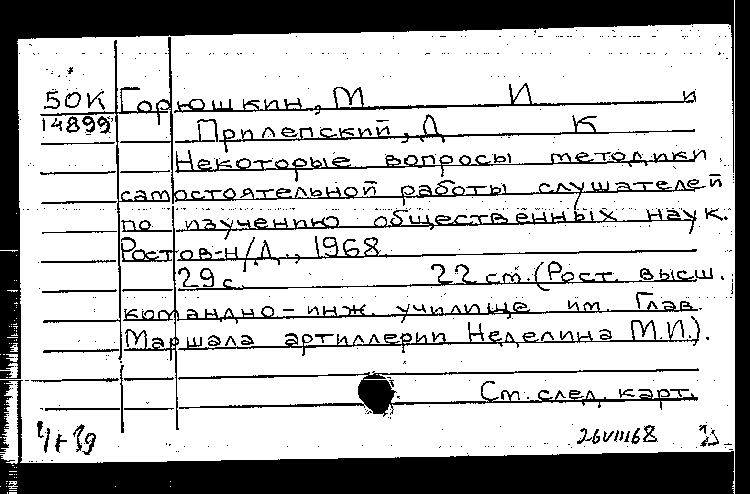 50К Горюшкин, М И и
14899 Прилепский, Д К
Некоторые вопросы методики
самостоятельной работы слушателей
по изучению общественных наук.
Ростов-н/Д., 1968.
29 с. 22 cm. (Рост. высш.
командно-инж. училище им. Глав.
Маршала артиллерии Неделина М.И.).
Ст. след. карт.
26VIII68